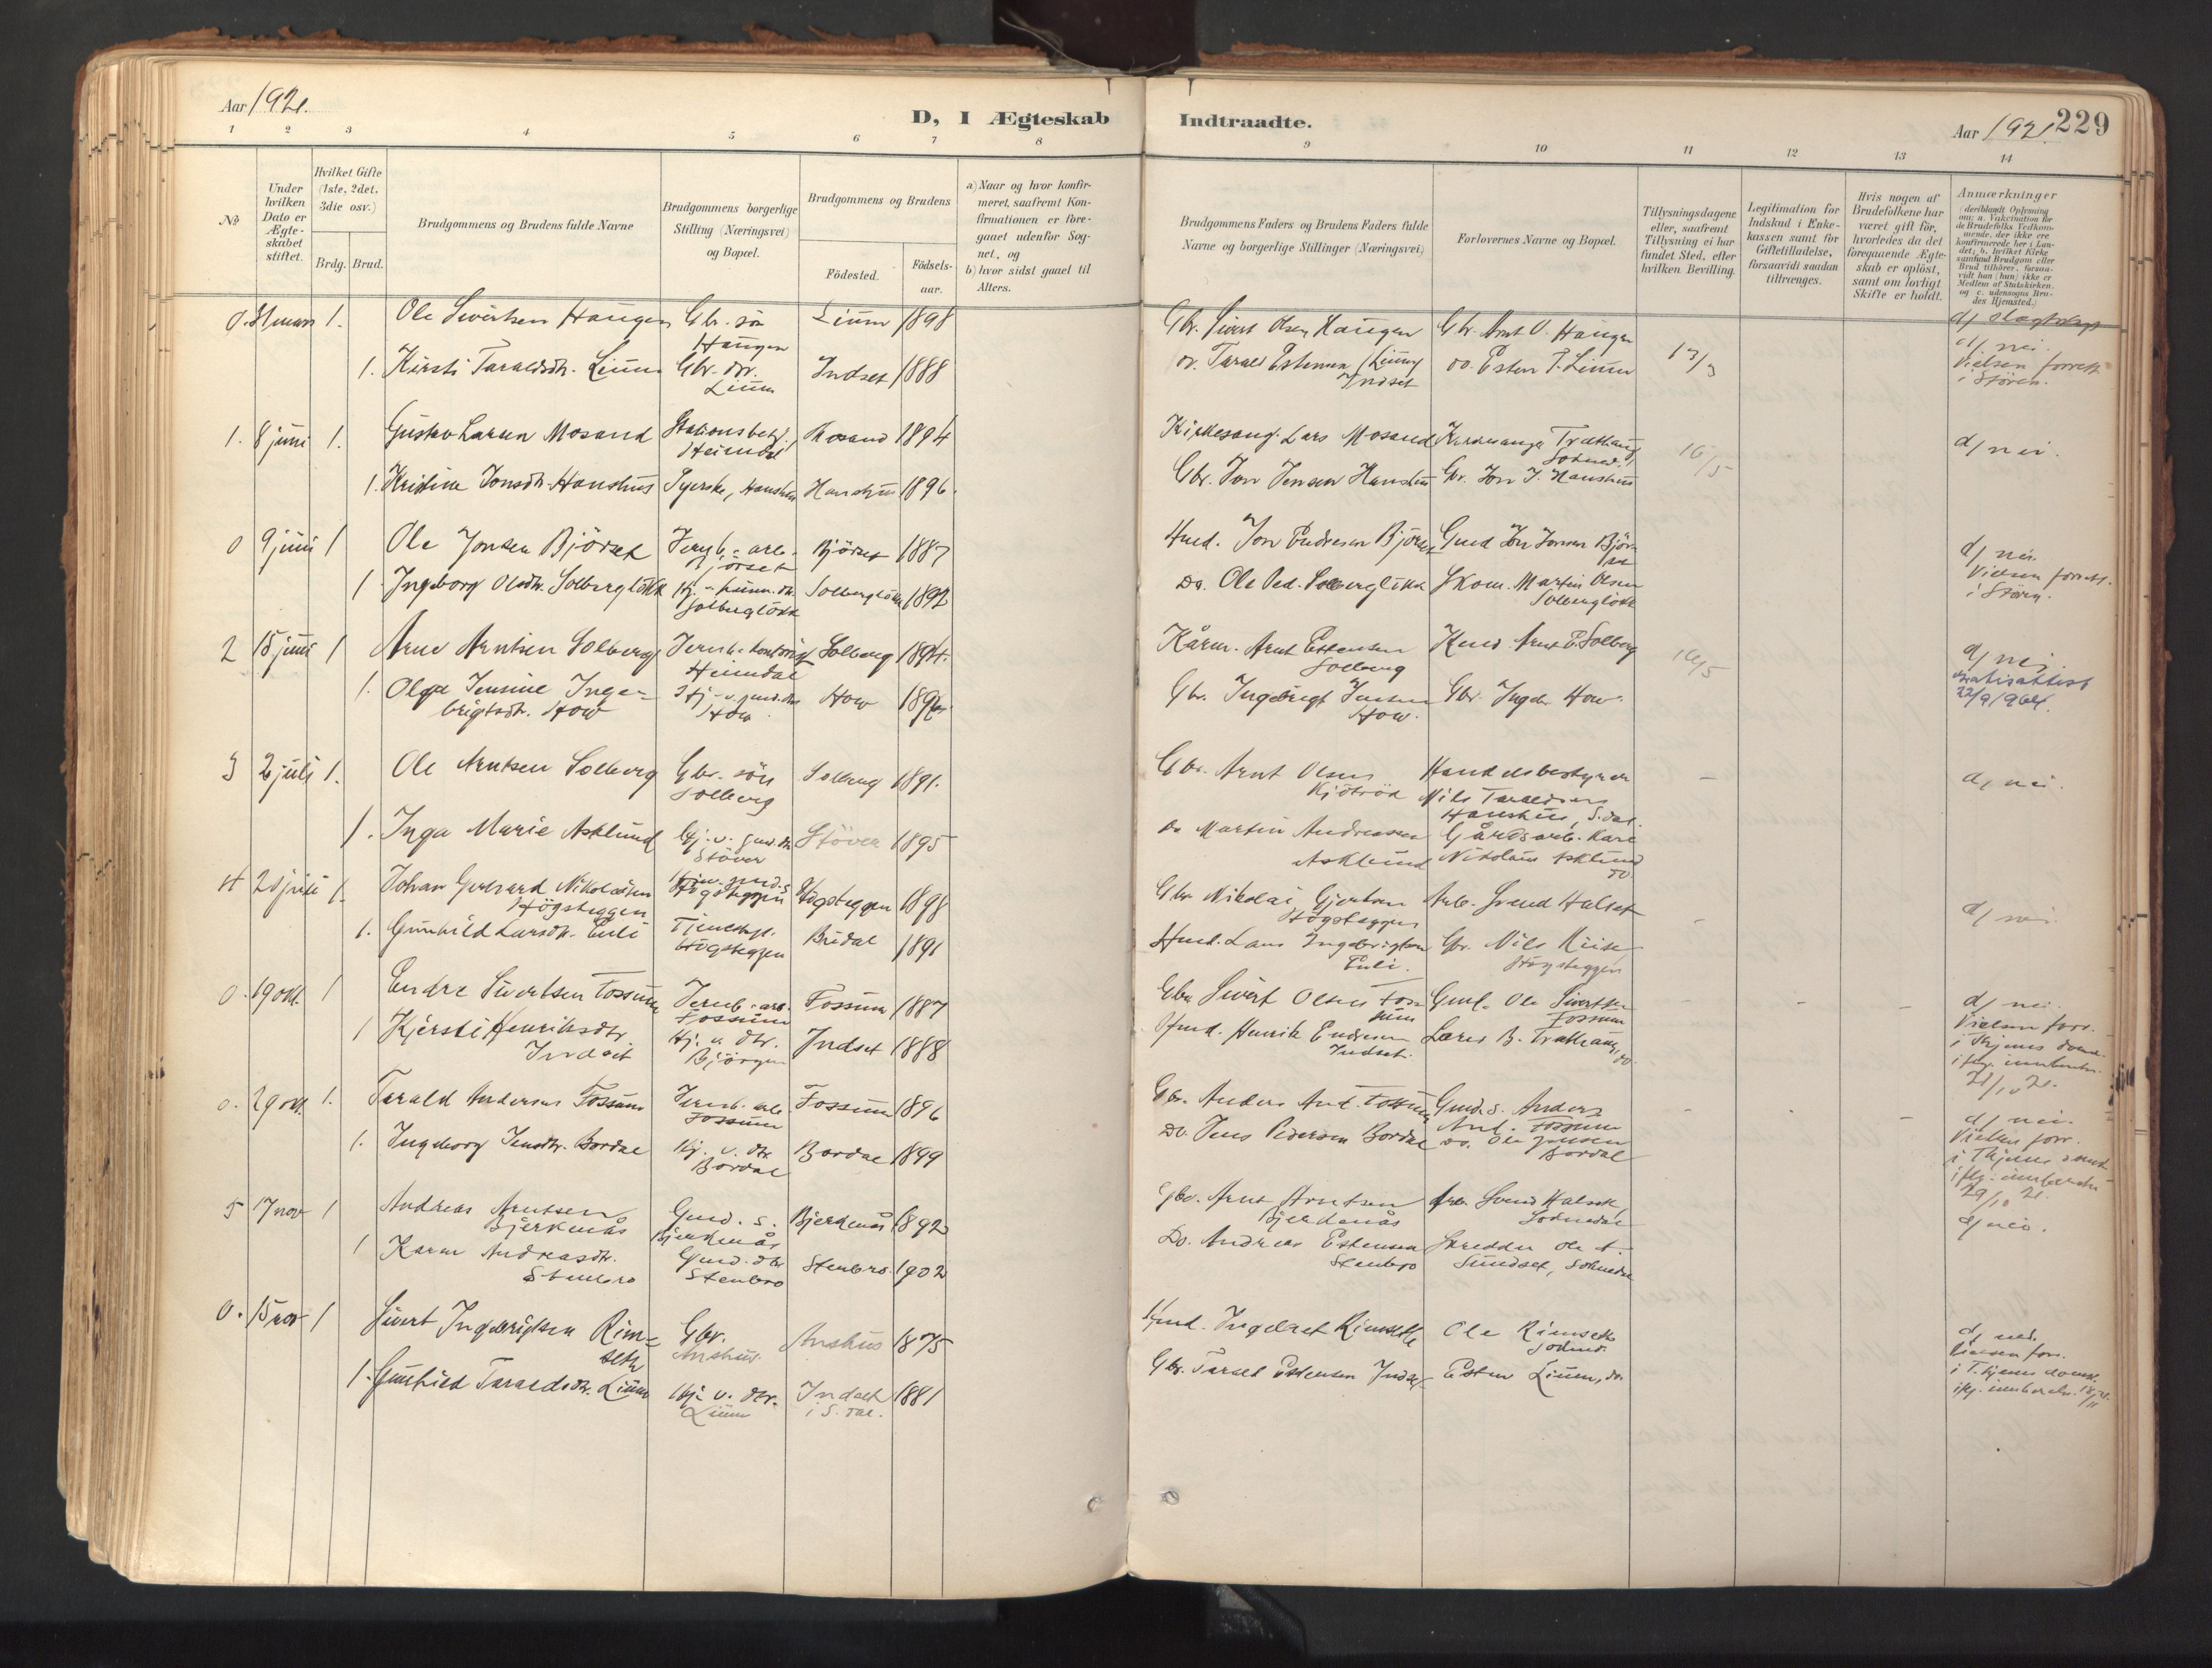 Aar 1921.
D, I Ægteskab
Indtraadte.
Aar 1921.
229
1 2 3 4 5 6 7 8
9 10 11 12 13 14
No
Under hvilken Dato er Ægteskabet stiftet.
Hvilket Gifte (1ste, 2det, 3die osv.)
Brdg. Brud.
Brudgommens og Brudens fulde Navne
Brudgommens borgerlige Stilling (Næringsvei) og Bopæl.
Brudgommens og Brudens
Födested.
Födsels-aar.
a) Naar og hvor konfirmeret, saafremt Konfirmationen er foregaaet udenfor Sognet, og
b) hvor sidst gaaet til Alters.
Brudgommens Faders og Brudens Faders fulde Navne og borgerlige Stillinger (Næringsvei)
Forlovernes Navne og Bopæl.
Tillysningsdagene eller, saafremt Tillysning ei har fundet Sted, efter hvilken Bevilling.
Legitimation for Indskud i Enkekassen samt for Giftetilladelse, forsaavidt saadan tiltrænges.
Hvis nogen af Brudefolkene har været gift för, hvorledes da det foregaaende Ægteskab er oplöst, samt om lovligt Skifte er holdt.
Anmærkninger
(deriblandt Oplysning om: a. Vakcination for de Brudefolks Vedkommende, der ikke ere konfirmerede her i Landet; b. hvilket Kirkesamfund Brudgom eller Brud tilhörer, forsaavidt han (hun) ikke er Medlem af Statskirken, og c. udensogns Brudes Hjemsted.)
0. 31 mars 1. Ole Sivertsen Haugen Gbr. sön Haugen Lium 1898
Gbr. Sivert Olsen Haugen Gbr. Arnt O. Haugen
1. Kirsti Taraldsdtr. Lium Gbr. dtr. Lium Indset 1888
Tarald Estensen Lium Indset do. Esten T. Lium 13/3
d) nei. Vielsen forrett. i Stören.
1. 8 juni 1. Gustav Larsen Mosand Heimdal Rosand 1894
Kirkesang. Lars Mosand Kirkesanger Trathaug, Sokned.
1. Kristine Jonsdtr. Hanshus Syerske, Hanshus Hanshus 1896.
Gbr. Jon Jensen Hanshus Gbr. Jon J. Hanshus 16/5
d) nei.
0 9 juni 1 Ole Jonsen Björset Jernb.-arb. Björset Björset 1887
Hmd. Jon Endresen Björset Gmd Jon Jonsen Björset
1. Ingeborg Olsdtr. Solberglökk Solberglökk Solberglökk 1892
Do. Ole Ped. Solberglökk Skom. Martin Olsen Solberglökk
d) nei. Vielsen forrett. i Stören.
2 15 juni 1 Arne Arntsen Solberg Heimdal Solberg 1894.
Kårm. Arnt Estensen Solberg Arnt E. Solberg
1. Olga Jensine Ingebrigtsdtr. How Hj. v. gmd. dtr How How
Gbr. Ingebrigt Jensen How. Gbr. Ingebr. How. 16/5
d) nei. gratisattest 22/9 1964.
3 2 juli 1. Ole Arntsen Solberg Gbr. sön Solberg Solberg 1891.
Gbr. Arnt Olsen Kjötröd Handelsbestyrer Nils Taraldsen Hanshus, S.dal.
1. Inga Marie Asklund Hj. v. gmd. dtr Stöver Stöver 1895
Do Martin Andreassen Asklund Gårdsarb. Karl Nikolaus Asklund do
d) nei.
4 1. Johan Gerhard Nikolaisen Högsteggen Högsteggen Högsteggen 1898
Gbr Nikolai Gjertsen Högsteggen Arb. Svend Halset
1. Gunhild Larsdtr. Enli Högsteggen Budal 1891
Hmd. Lars Ingebrigtsen Enli. Gbr. Nils Högsteggen
d) nei.
0. 19 okt. 1 Endre Sivertsen Fossum Jernb.-arb. Fossum Fossum 1887
Gbr Sivert Olsen Fossum Gmd. Ole Sivertsen Fossum
1 Kjersti Henriksdtr Indset Hj. v. dtr. Björgen Indset 1888
Hmd. Henrik Endresen Indset. Lærer B. Trathaug, do.
d) nei. Vielsen forr. i Thjems domk. iflg. innberetn. 21/10 21.
0. 29 okt 1. Tarald Andersen Fossum Jernb. arb Fossum Fossum 1896
Gbr. Anders And. Fossum Gmd. s. Anders And. Fossum
1. Ingeborg Jensdtr. Bordal Hj. v. dtr Bordal Bordal 1899
Do. Jens Pedersen Bordal do. Ole Jensen Bordal
d) nei. Vielsen forr. i Thjems domk iflg. innberetn 29/10 21.
5 17 nov 1 Andreas Arntsen Bjerkenås Gmd. s. Bjerkenås Bjerkenås 1892
Gbr. Arnt Arntsen Bjerkenås Arb. Svend Halset, Soknedal
1 Karen Andreasdtr. Stenbro Gmd. dtr Stenbro Stenbro. 1902
Do. Andreas Estensen Stenbro Skredder Ole A. Sundset, Soknedal
d) nei.
0. 15 nov 1 Sivert Ingebrigtsen Rimseth Gbr. Anshus. Anshus 1875
Hmd. Ingebret Rimseth Ole Rimseth Sokned.
1. Gunhild Taraldsdtr. Lium Hj. v. dtr. Lium Indset i S.dal. 1881
Gbr. Tarald Estensen Indset Esten Lium, do.
d) nei. Vielsen forr. i T.hjems domk. iflg. innberetn. 18/11 21.